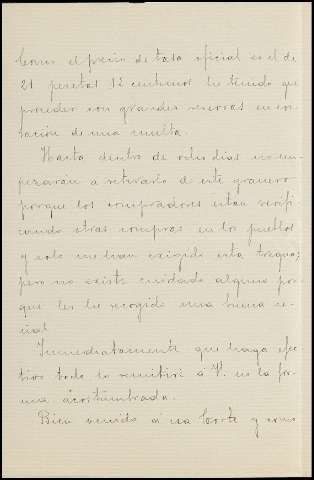 Como el precio de tasa oficial es el de
21 pesetas 12 centimos he tenido que
proceder con grandes reservas en evi-
tación de una multa.
Hasta dentro de ocho dias no em-
pezarán a retirarlo de este granero
porque los compradores estan verifi-
cando otras compras en los pueblos
y solo me han exigido esta tregua;
pero no existe cuidado alguno por-
que les he recogido una buena se-
ñal
Inmediatamente que haga efec-
tivo todo lo remitiré á V. en la for-
ma acostumbrada.
Bien venido á esa Corte y como